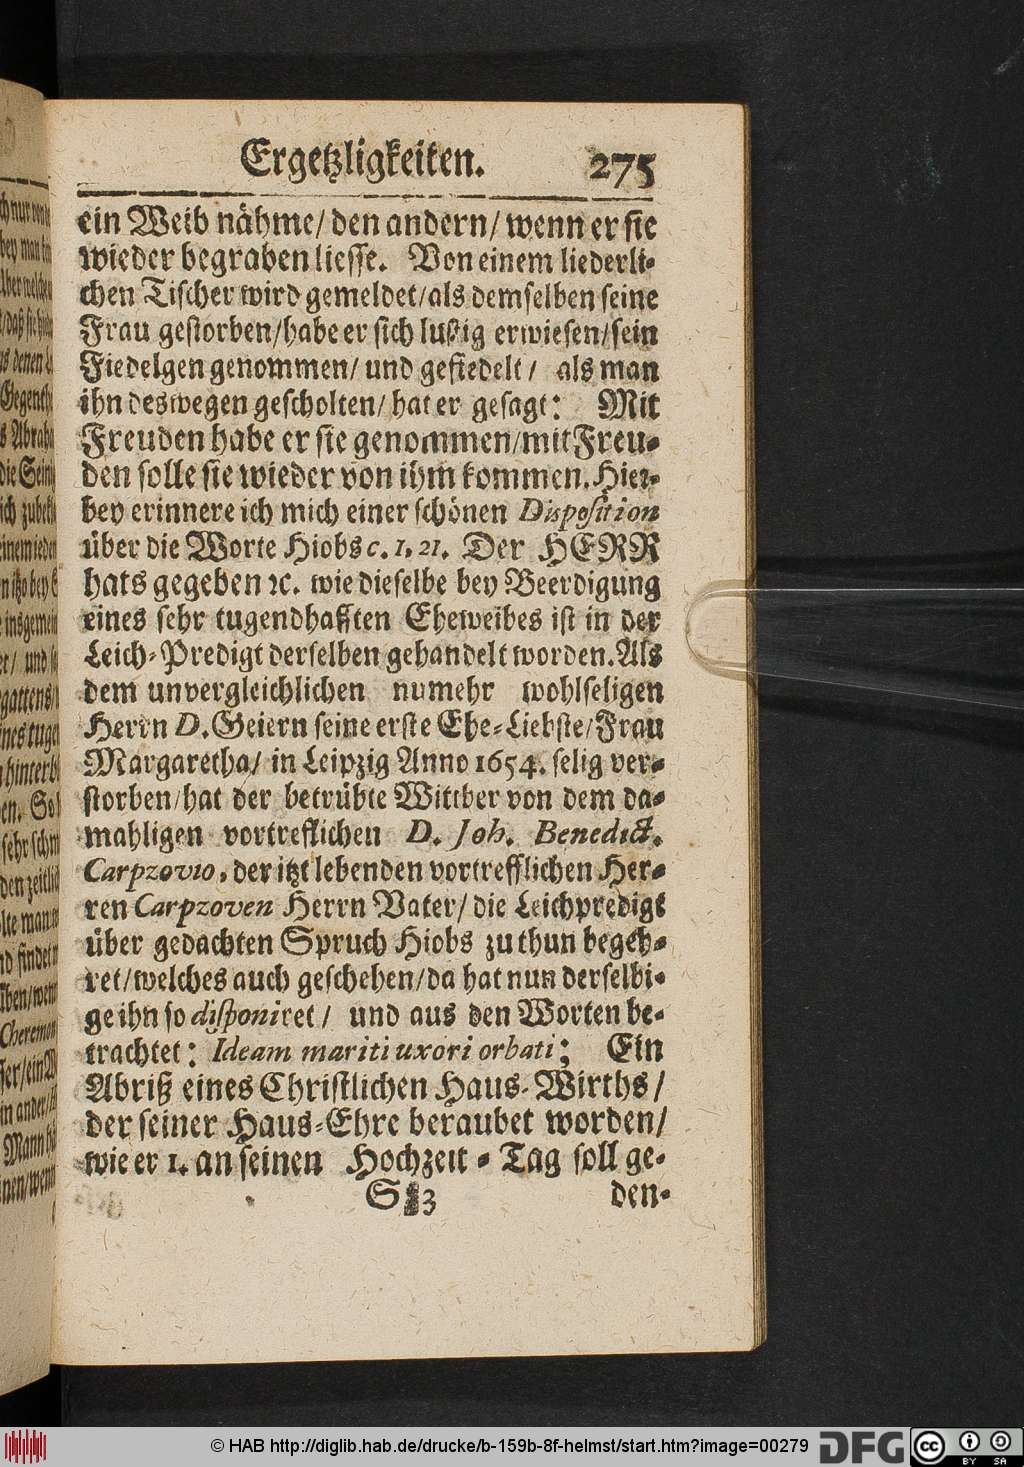 Ergetzligkeiten. 275
ein Weib nähme/ den andern/ wenn er sie
wieder begraben liesse. Von einem liederli-
chen Tischer wird gemeldet/ als demselben seine
Frau gestorben/ habe er sich lustig erwiesen/ sein
Fiedelgen genommen/ und gefiedelt/ als man
ihn deswegen gescholten/ hat er gesagt: Mit
Freuden habe er sie genommen/ mit Freu-
den solle sie wieder von ihm kommen. Hier-
bey erinnere ich mich einer schönen Disposition
über die Worte Hiobs c. 1, 21. Der HERR
hats gegeben ꝛc. wie dieselbe bey Beerdigung
eines sehr tugendhafften Eheweibes ist in der
Leich-Predigt derselben gehandelt worden. Als
dem unvergleichlichen numehr wohlseligen
Herrn D. Geiern seine erste Ehe-Liebste/ Frau
Margaretha/ in Leipzig Anno 1654. selig ver-
storben/ hat der betrübte Wittber von dem da-
mahligen vortreflichen D. Joh. Benedict.
Carpzovio, der itzt lebenden vortrefflichen Her-
ren Carpzoven Herrn Vater/ die Leichpredigt
über gedachten Spruch Hiobs zu thun begeh-
ret/ welches auch geschehen/ da hat nun derselbi-
ge ihn so disponiret/ und aus den Worten be-
trachtet: Ideam mariti uxori orbati; Ein
Abriß eines Christlichen Haus-Wirths/
der seiner Haus-Ehre beraubet worden/
wie er 1. an seinen Hochzeit-Tag soll ge-
S 3 den-
© HAB http://diglib.hab.de/drucke/b-159b-8f-helmst/start.htm?image=00279
DFG
cc BY SA